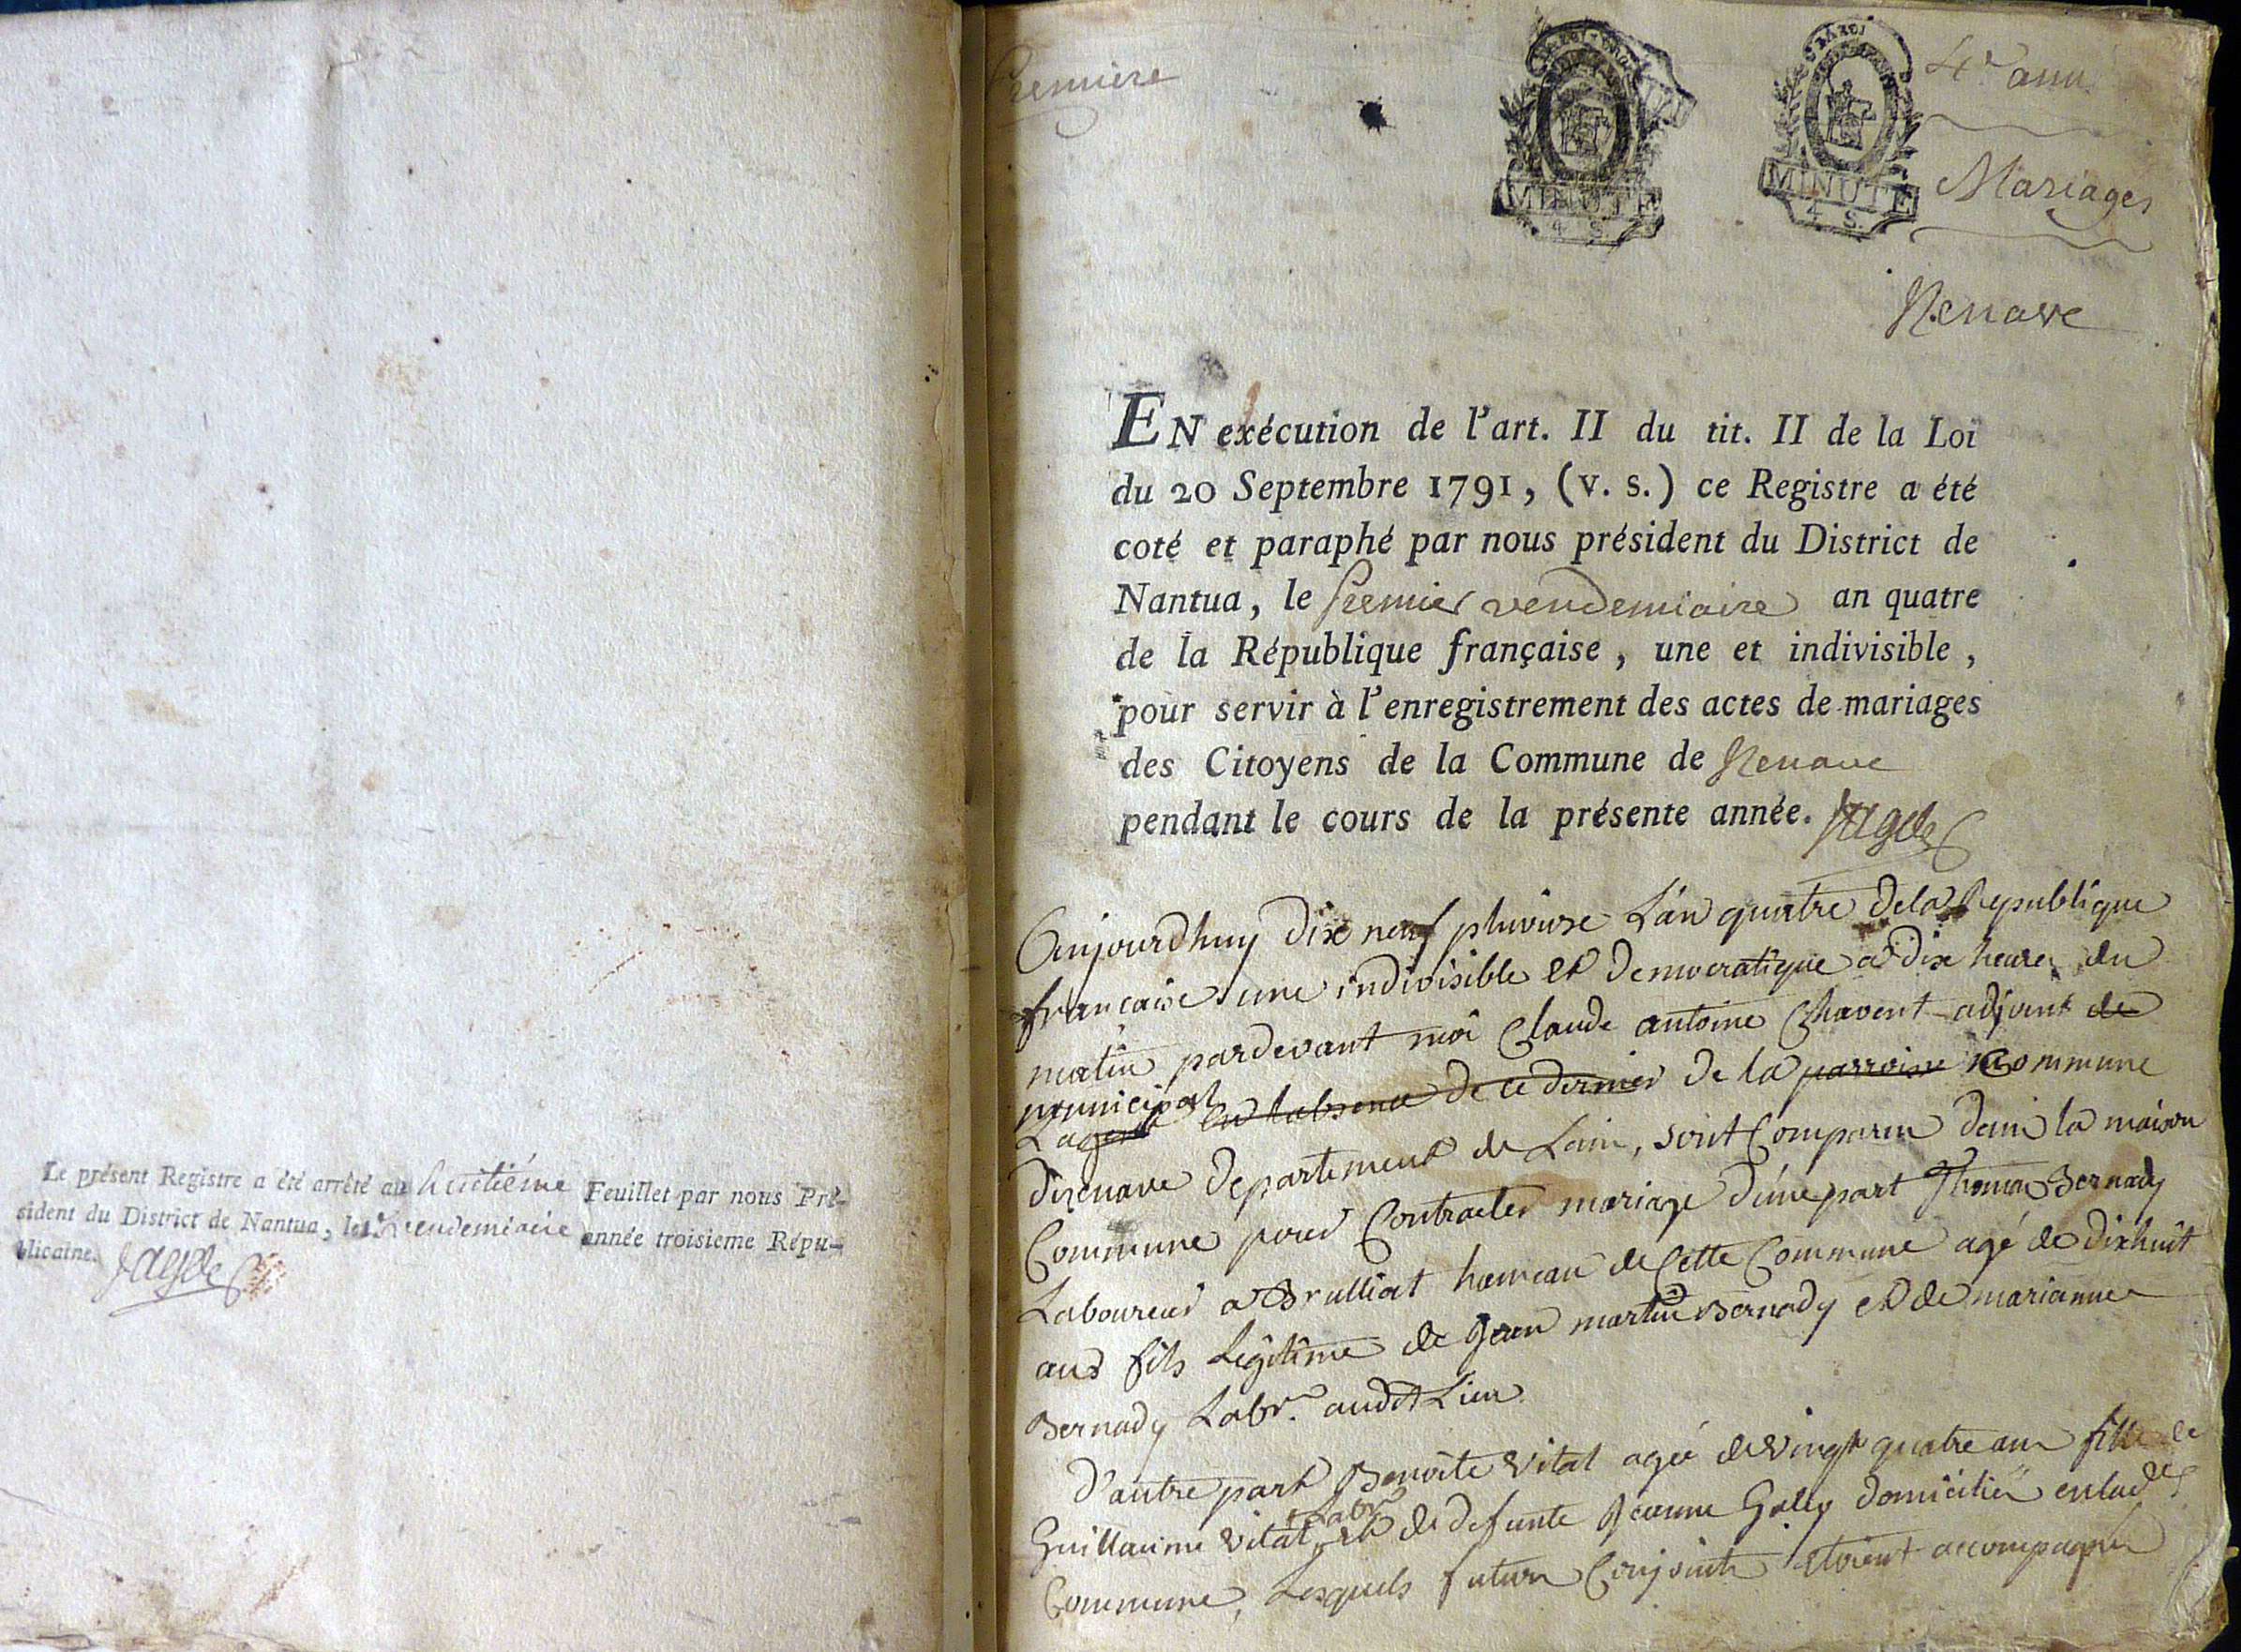 Le présent Registre a été arrêté au huitiéme Feuillet par nous Pré-
sident du District de Nantua, le vendemiaire année troisieme Répu-
blicaine.
Premiere
4e ann
Mariages
MINUTE
4 S.
MINUTE
4 S.
Izenave
EN exécution de l'art. II du tit. II de la Loi
du 20 Septembre 1791, (v. s.) ce Registre a été
coté et paraphé par nous président du District de
Nantua, le premier vendemiaire an quatre
de la République française, une et indivisible,
pour servir à l'enregistrement des actes de mariages
des Citoyens de la Commune de Izenave
pendant le cours de la présente année.
Aujourdhuy dix neuf pluviose L'an quatre dela Republique
francaise une indivisible et democratique a dix heures du
matin pardevant moi Claude antoine Chavent adjoint de
municipal
L'agent en labsence de ce dernier de la parroisse Commune
dizenave departement de Lain, sont Comparu dans la maison
Commune pour Contracter mariage d'une part Thomas Bernady
Laboureur a Brulliat hameau de Cette Commune agé de dixhuit
ans fils Légitime de Jean martin Bernady et de marianne
Bernady Labr. audt Lieu
D'autre part Benoite Vital agée de vingt quatre ans fille de
Labr
Guillaume Vital et de defunte Jeanne Goley domiciliée en lad.
Commune, Lesquels futurs Conjoints etoient accompagnés